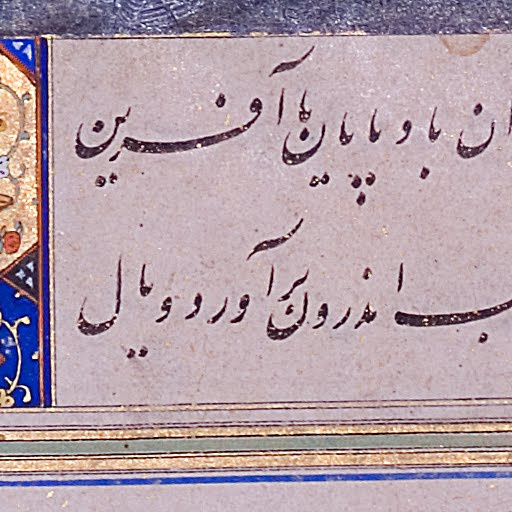 ان بادپایان با آفرین
ب اندرون برآورد و یال